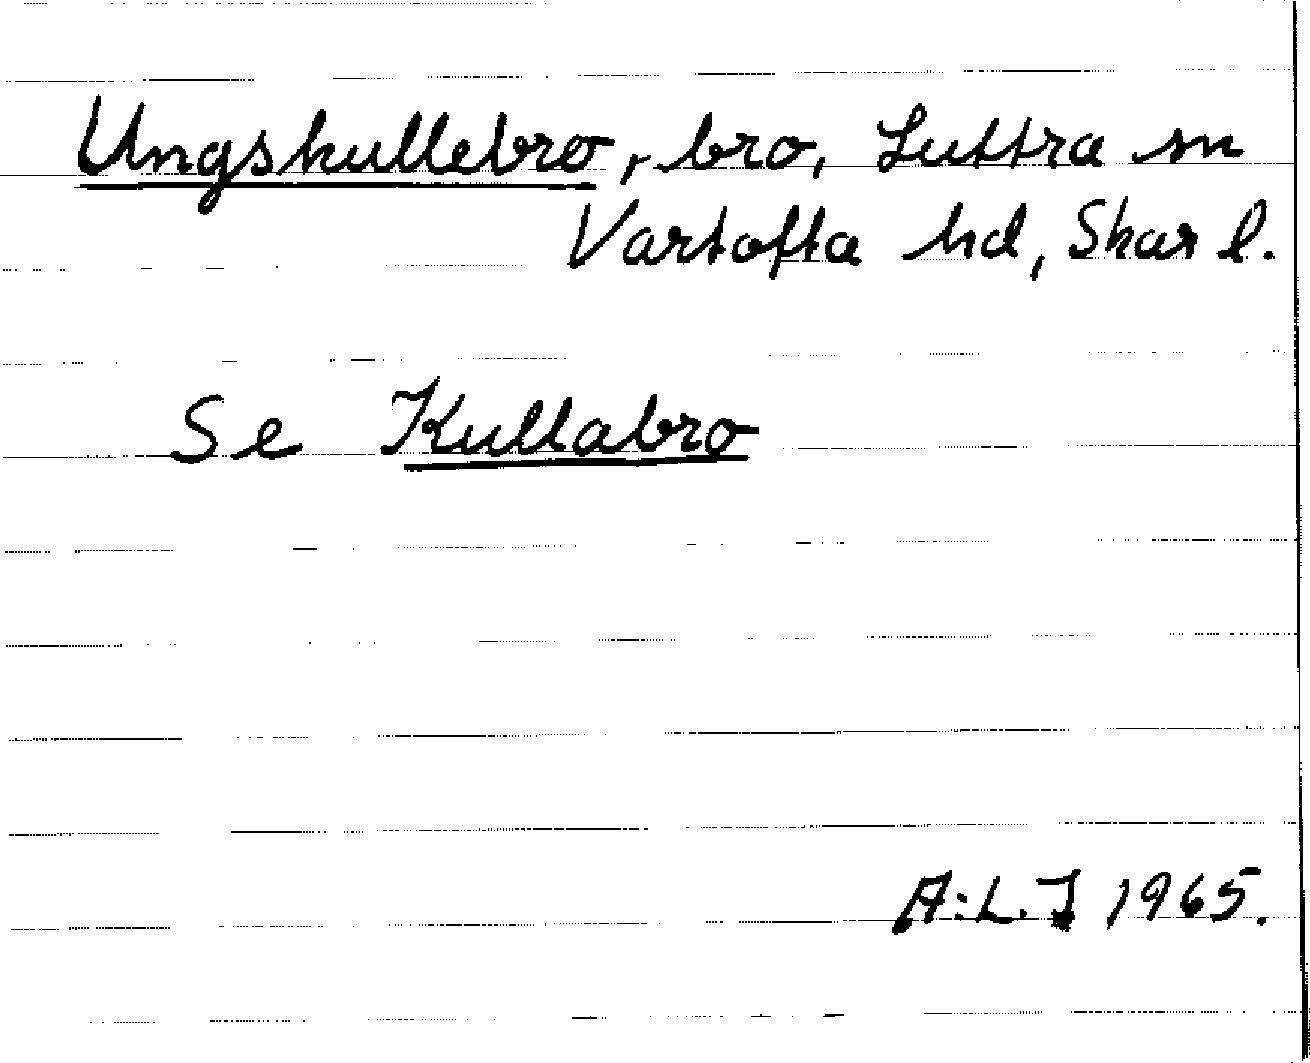 Ungskullebro, bro, Luttra sn
Vartofta hd, Skar l.
Se Kullabro
A:L.J 1965.